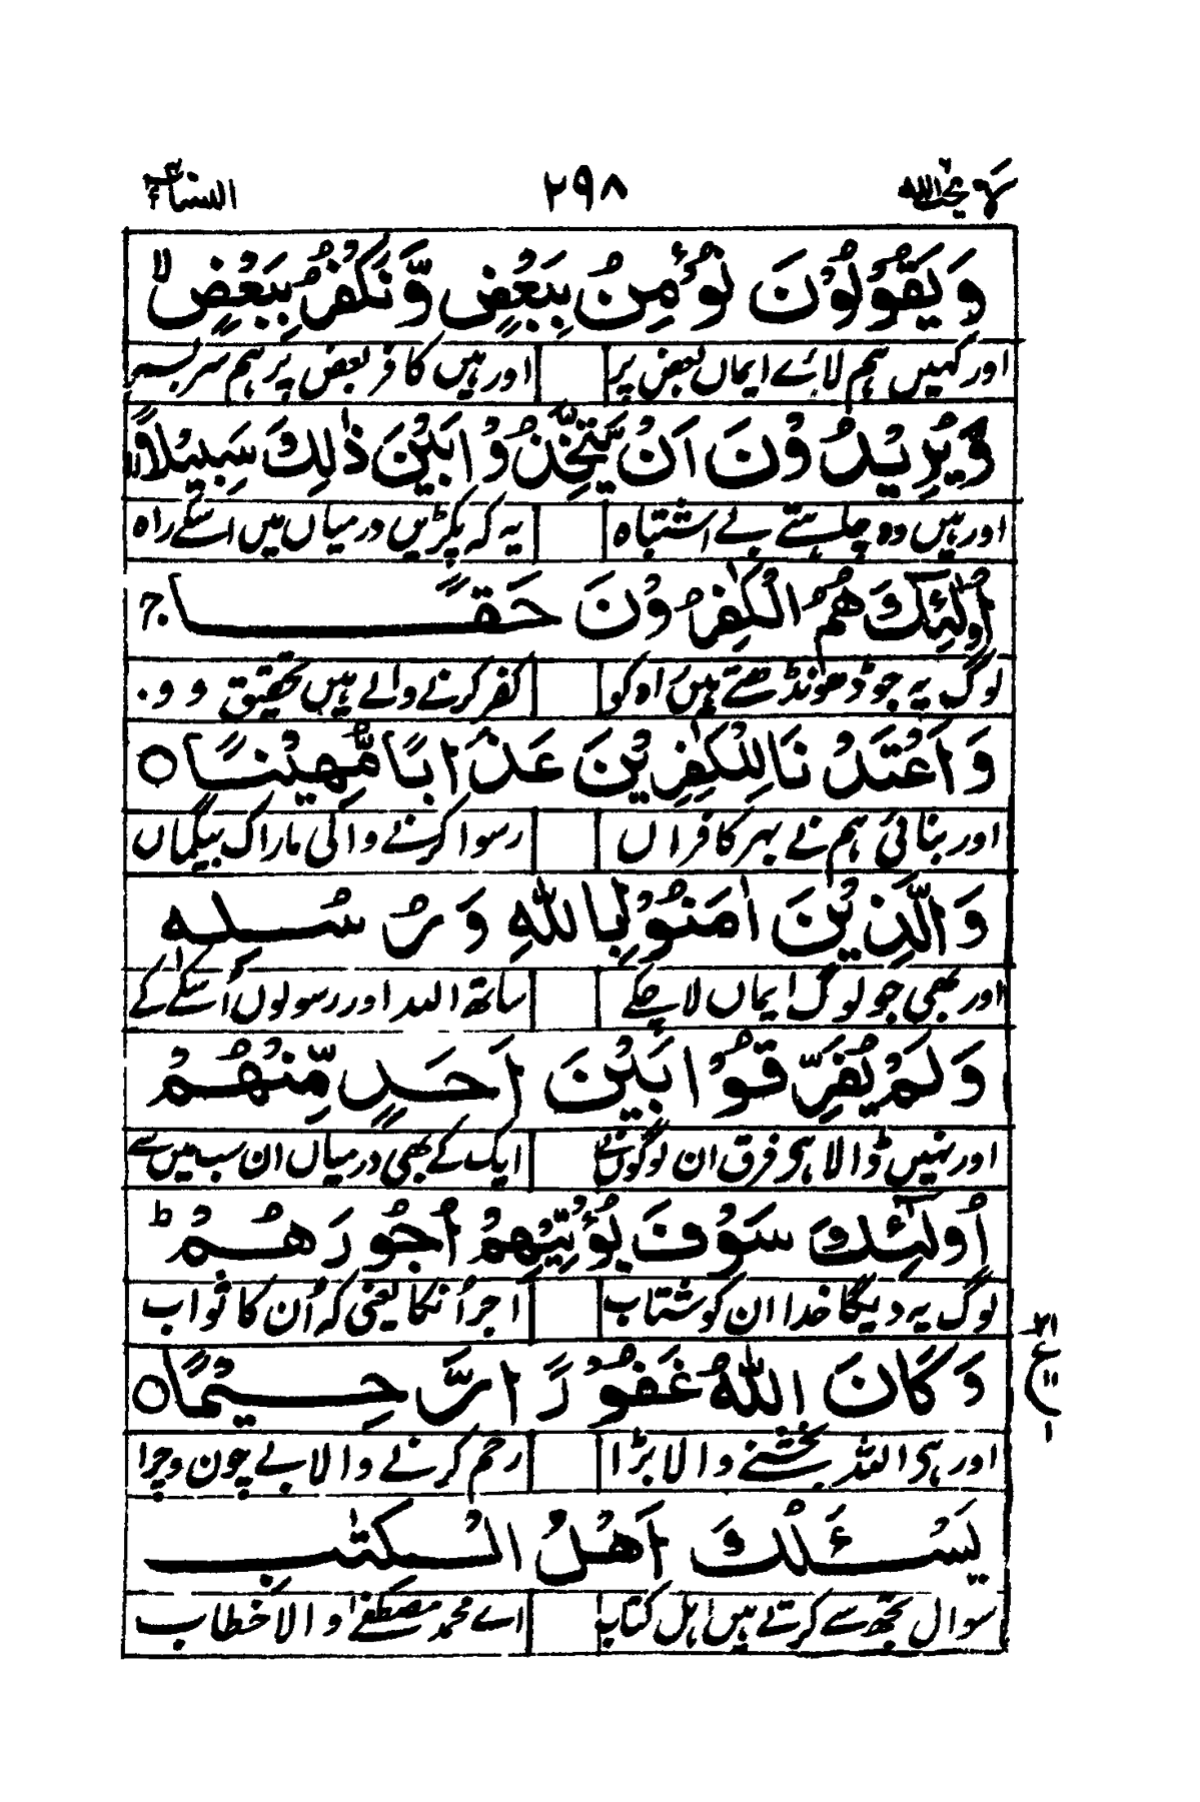 لا یحب اللہ ۲۹۸ النساء ۴
وَيَقُوْلُوْنَ نُؤْمِنُ بِبَعْضٍ وَّنَكْفُرُ بِبَعْضٍ ۙ
اور کہیں ہم لائے ایماں بعض پر اور ہیں کافر بعض پر ہم سر بسر
وَّيُرِيْدُوْنَ اَنْ يَّتَّخِذُوْا بَيْنَ ذٰلِكَ سَبِيْلًا ۙ
اور ہیں وہ چاہتے بے اشتباہ یہ کہ پکڑیں درمیاں میں اسکے راہ
اُولٰٓئِكَ هُمُ الْكٰفِرُوْنَ حَقًّا ۚ
لوگ یہ جو ڈھونڈھتے ہیں کفر کرنے والے ہیں تحقیق وو.
وَاَعْتَدْنَا لِلْكٰفِرِيْنَ عَذَابًا مُّهِيْنًا ○
اور بنائی ہم نے بہر کافراں رسوا کرنے والی مار اک بیگماں
وَالَّذِيْنَ اٰمَنُوْا بِاللّٰهِ وَرُسُلِهٖ
اور بھی جو لوگ ایماں لا چکے ساتھ اللہ اور رسولوں اُسکے کے
وَلَمْ يُفَرِّقُوْا بَيْنَ اَحَدٍ مِّنْهُمْ
اور نہیں ڈالا ہی فرق ان لوگوں نے ایک کے بھی درمیاں ان سب میں سے
اُولٰٓئِكَ سَوْفَ يُؤْتِيْهِمْ اُجُوْرَهُمْ ؕ
لوگ یہ دیگا خدا ان کو شتاب اجر اُنکا یعنی کہ اُن کا ثواب
وَكَانَ اللّٰهُ غَفُوْرًا رَّحِيْمًا ○
اور ہی اللہ بخشنے والا بڑا رحم کرنے والا بے چون و چرا
يَسْـَٔلُكَ اَهْلُ الْكِتٰبِ
سوال تجھ سے کرتے ہیں اہل کتاب اے محمد مصطفےٰ والا خطاب